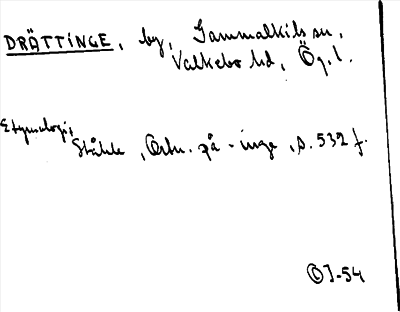 DRÄTTINGE, by, Gammalkils sn,
Valkebo hd, Ög. l.
Etymologi,
Ståhle, Ortn. på -inge, s. 532 f.
J-54